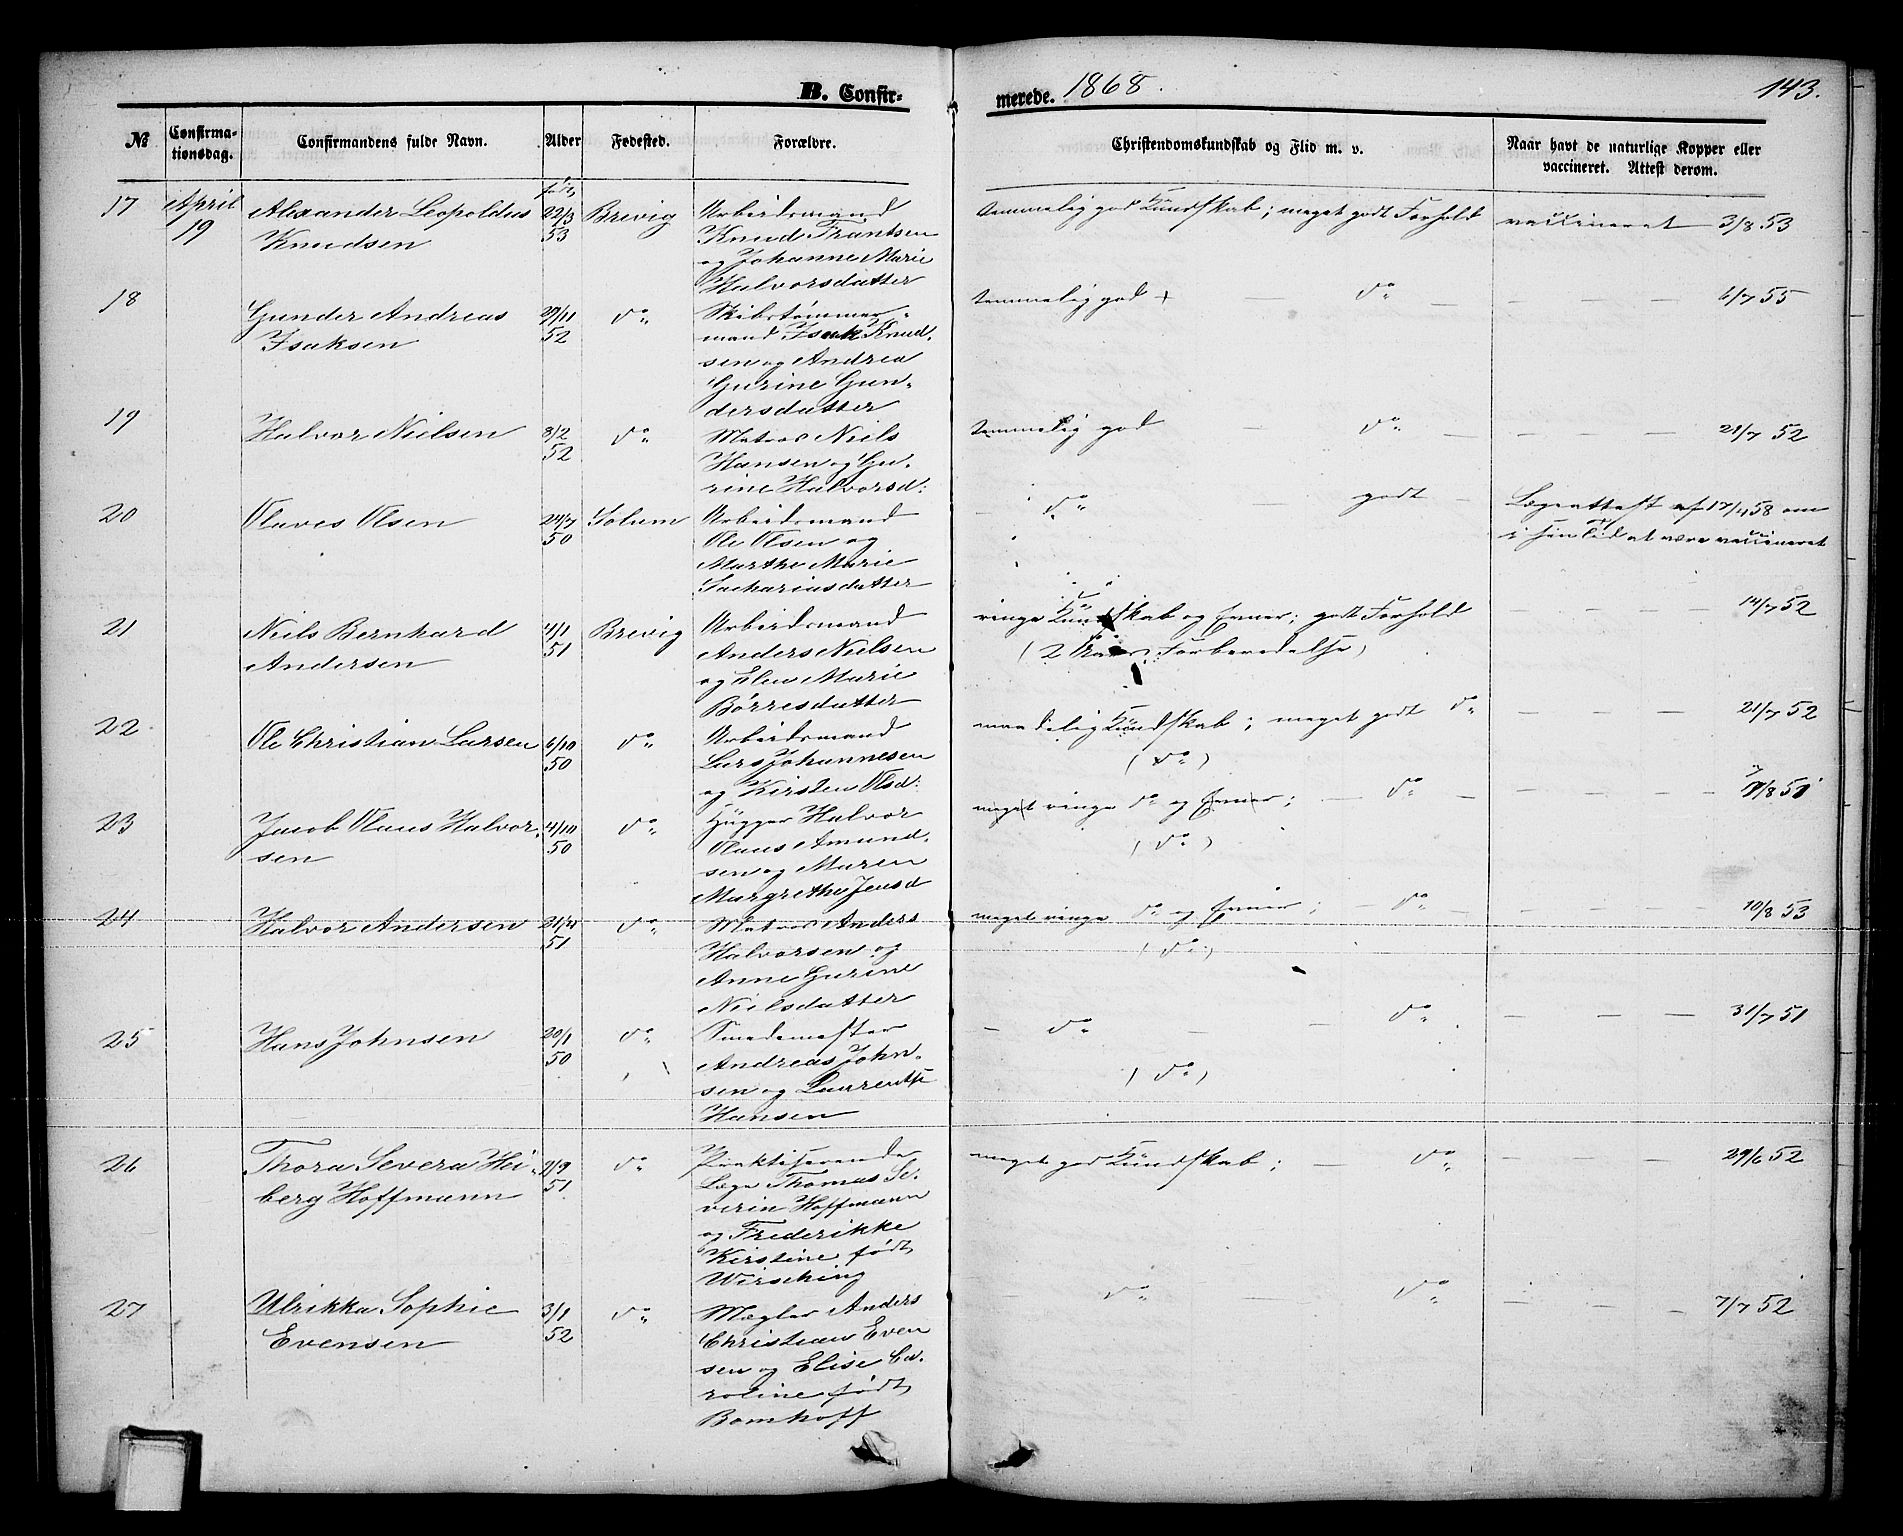 B. Confir-
merede. 1868.
143.
№ Confirma-tionsdag. Confirmandens fulde Navn. Alder Fødested. Forældre. Christendomskundskab og Flid m. v. Naar havt de naturlige Kopper eller vaccineret. Attest derom.
17 April født
19 Alexander Leopoldus 22/3 Brevig Arbeidsmand temmelig god Kundskab; meget godt Forhold vaccineret 3/8 53
Knudsen 53 Knud Frantsen
og Johanne Marie
Halvorsdatter
18 Gunder Andreas 29/11 do Skibstømmer- temmelig god + — do — — — 6/7 55
Isaksen 52 mand Isak Knud-
sen og Andrea
Gurine Gun-
dersdatter
19 Halvor Nielsen 8/2 do Matros Niels temmelig god — do — — — — 21/7 52
52 Hansen og Gu-
rine Halvorsd:
20 Olaves Olsen 24/7 Solum Arbeidsmand — do — godt — Lægeattest af 17/4 58 om
50 Ole Olsen og i sin Tid at være vaccineret
Marthe Marie
Sachariasdatter
21 Niels Bernhard 4/1 Brevig Arbeidsmand ringe Kundskab og Evner; godt Forhold — — — 14/7 52
Andersen 51 Anders Nielsen (2 Aars Forberedelse)
og Elen Marie
Børresdatter
22 Ole Christian Larsen 6/10 do Arbeidsmand maadelig Kundskab; meget godt do — — — 21/7 52
50 Lars Johannesen (do)
og Kirsten Olsd:
23 Jacob Olaus Halvor- 4/10 do Hugger Halvor meget ringe do og Evner; — do — — — — /8 51
sen 50 Olaus Amund- (do)
sen og Maren
Margrethe Jensd
24 Halvor Andersen 21/4 do Matros Anders meget ringe do og Evner; — do — — — — 10/8 53
51 Halvorsen og (do)
Anne Gurine
Nielsdatter
25 Hans Johnsen 20/1 do Smedemester — do — — do — — — 31/7 51
50 Andreas John- (do)
sen og Laurentse
Hansen
26 Thora Severa Hei- 2/9 do Praktiserende meget god Kundskab; — do — — — 29/6 52
berg Hoffmann 51 Læge Thomas Se-
verin Hoffmann
og Frederikke
Kirstine født
Wirsching
27 Ulrikka Sophie 3/1 do Mægler Anders — do — — do — — — 7/7 52
Evensen 52 Christian Even
sen og Elise Ca-
roline født
Bomhoff